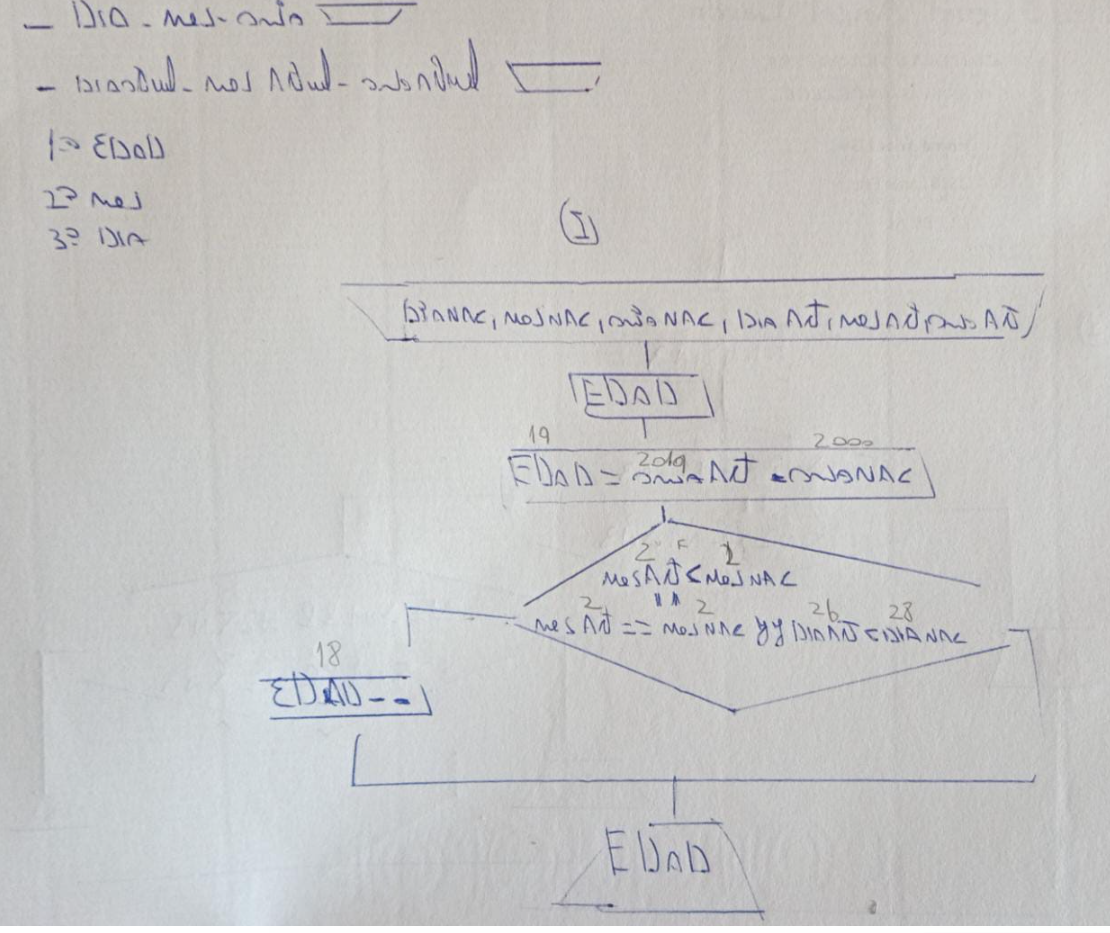 - DIA - mes - año
- DIA actual - mes Actual - año Actual
1º EDAD
2º mes
3º DIA
(I)
DIANAC, MESNAC, añoNAC, DIA Act, mesAct, año Act
EDAD
19 2019 2000
EDAD = añoAct - añoNAC
2 F 2
mesAct < MesNAC
2 2 26 28
mesAct == mesNAC yy DIAAct < DIANAC
18
EDAD--
EDAD